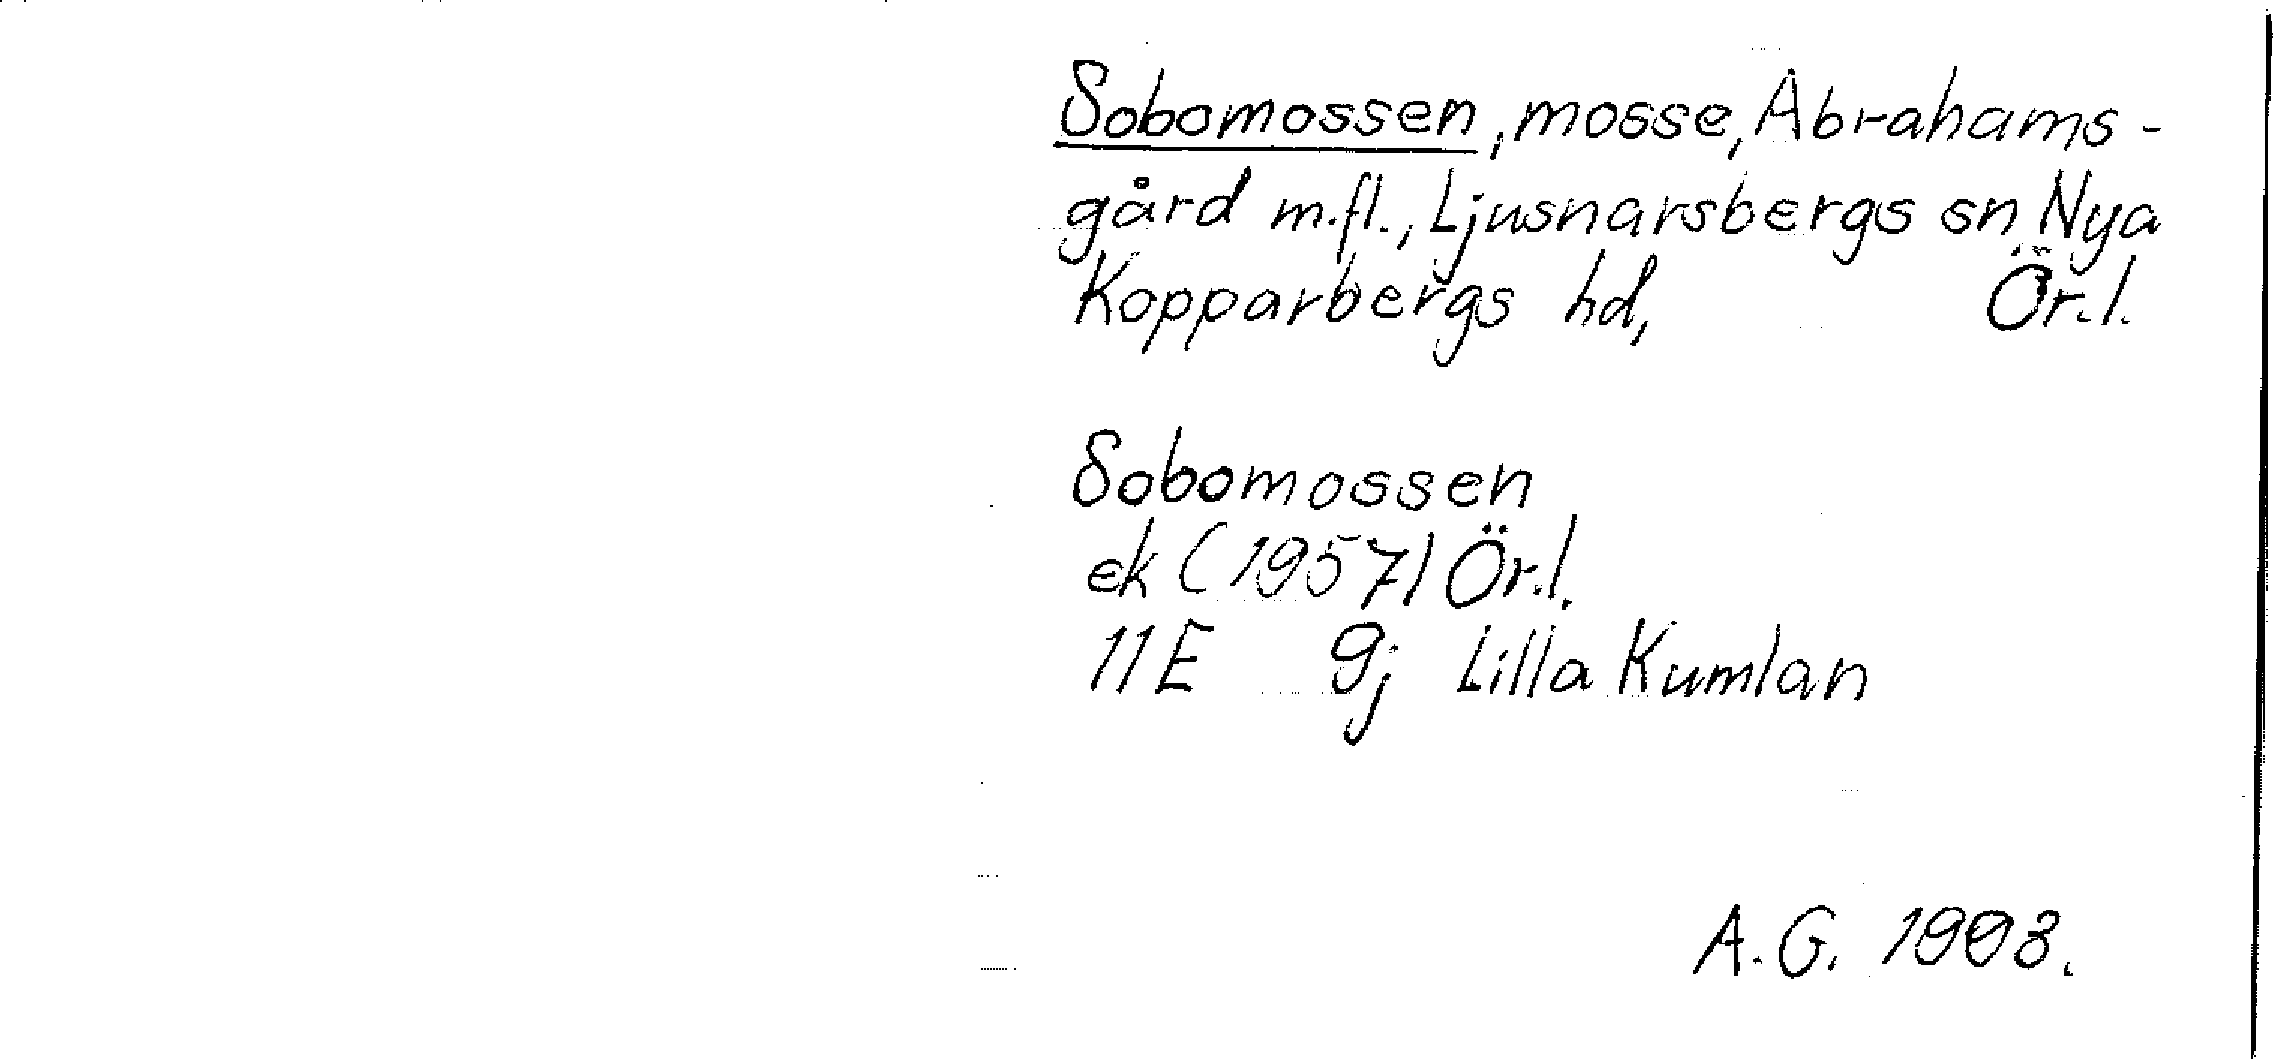 Sobomossen, mosse, Abrahams-
gård m.fl., Ljusnarsbergs sn Nya
Kopparbergs hd, Ör.l.
Sobomossen
ek (1957) Ör.l.
11E 9j Lilla Kumlan
A.G. 1993.